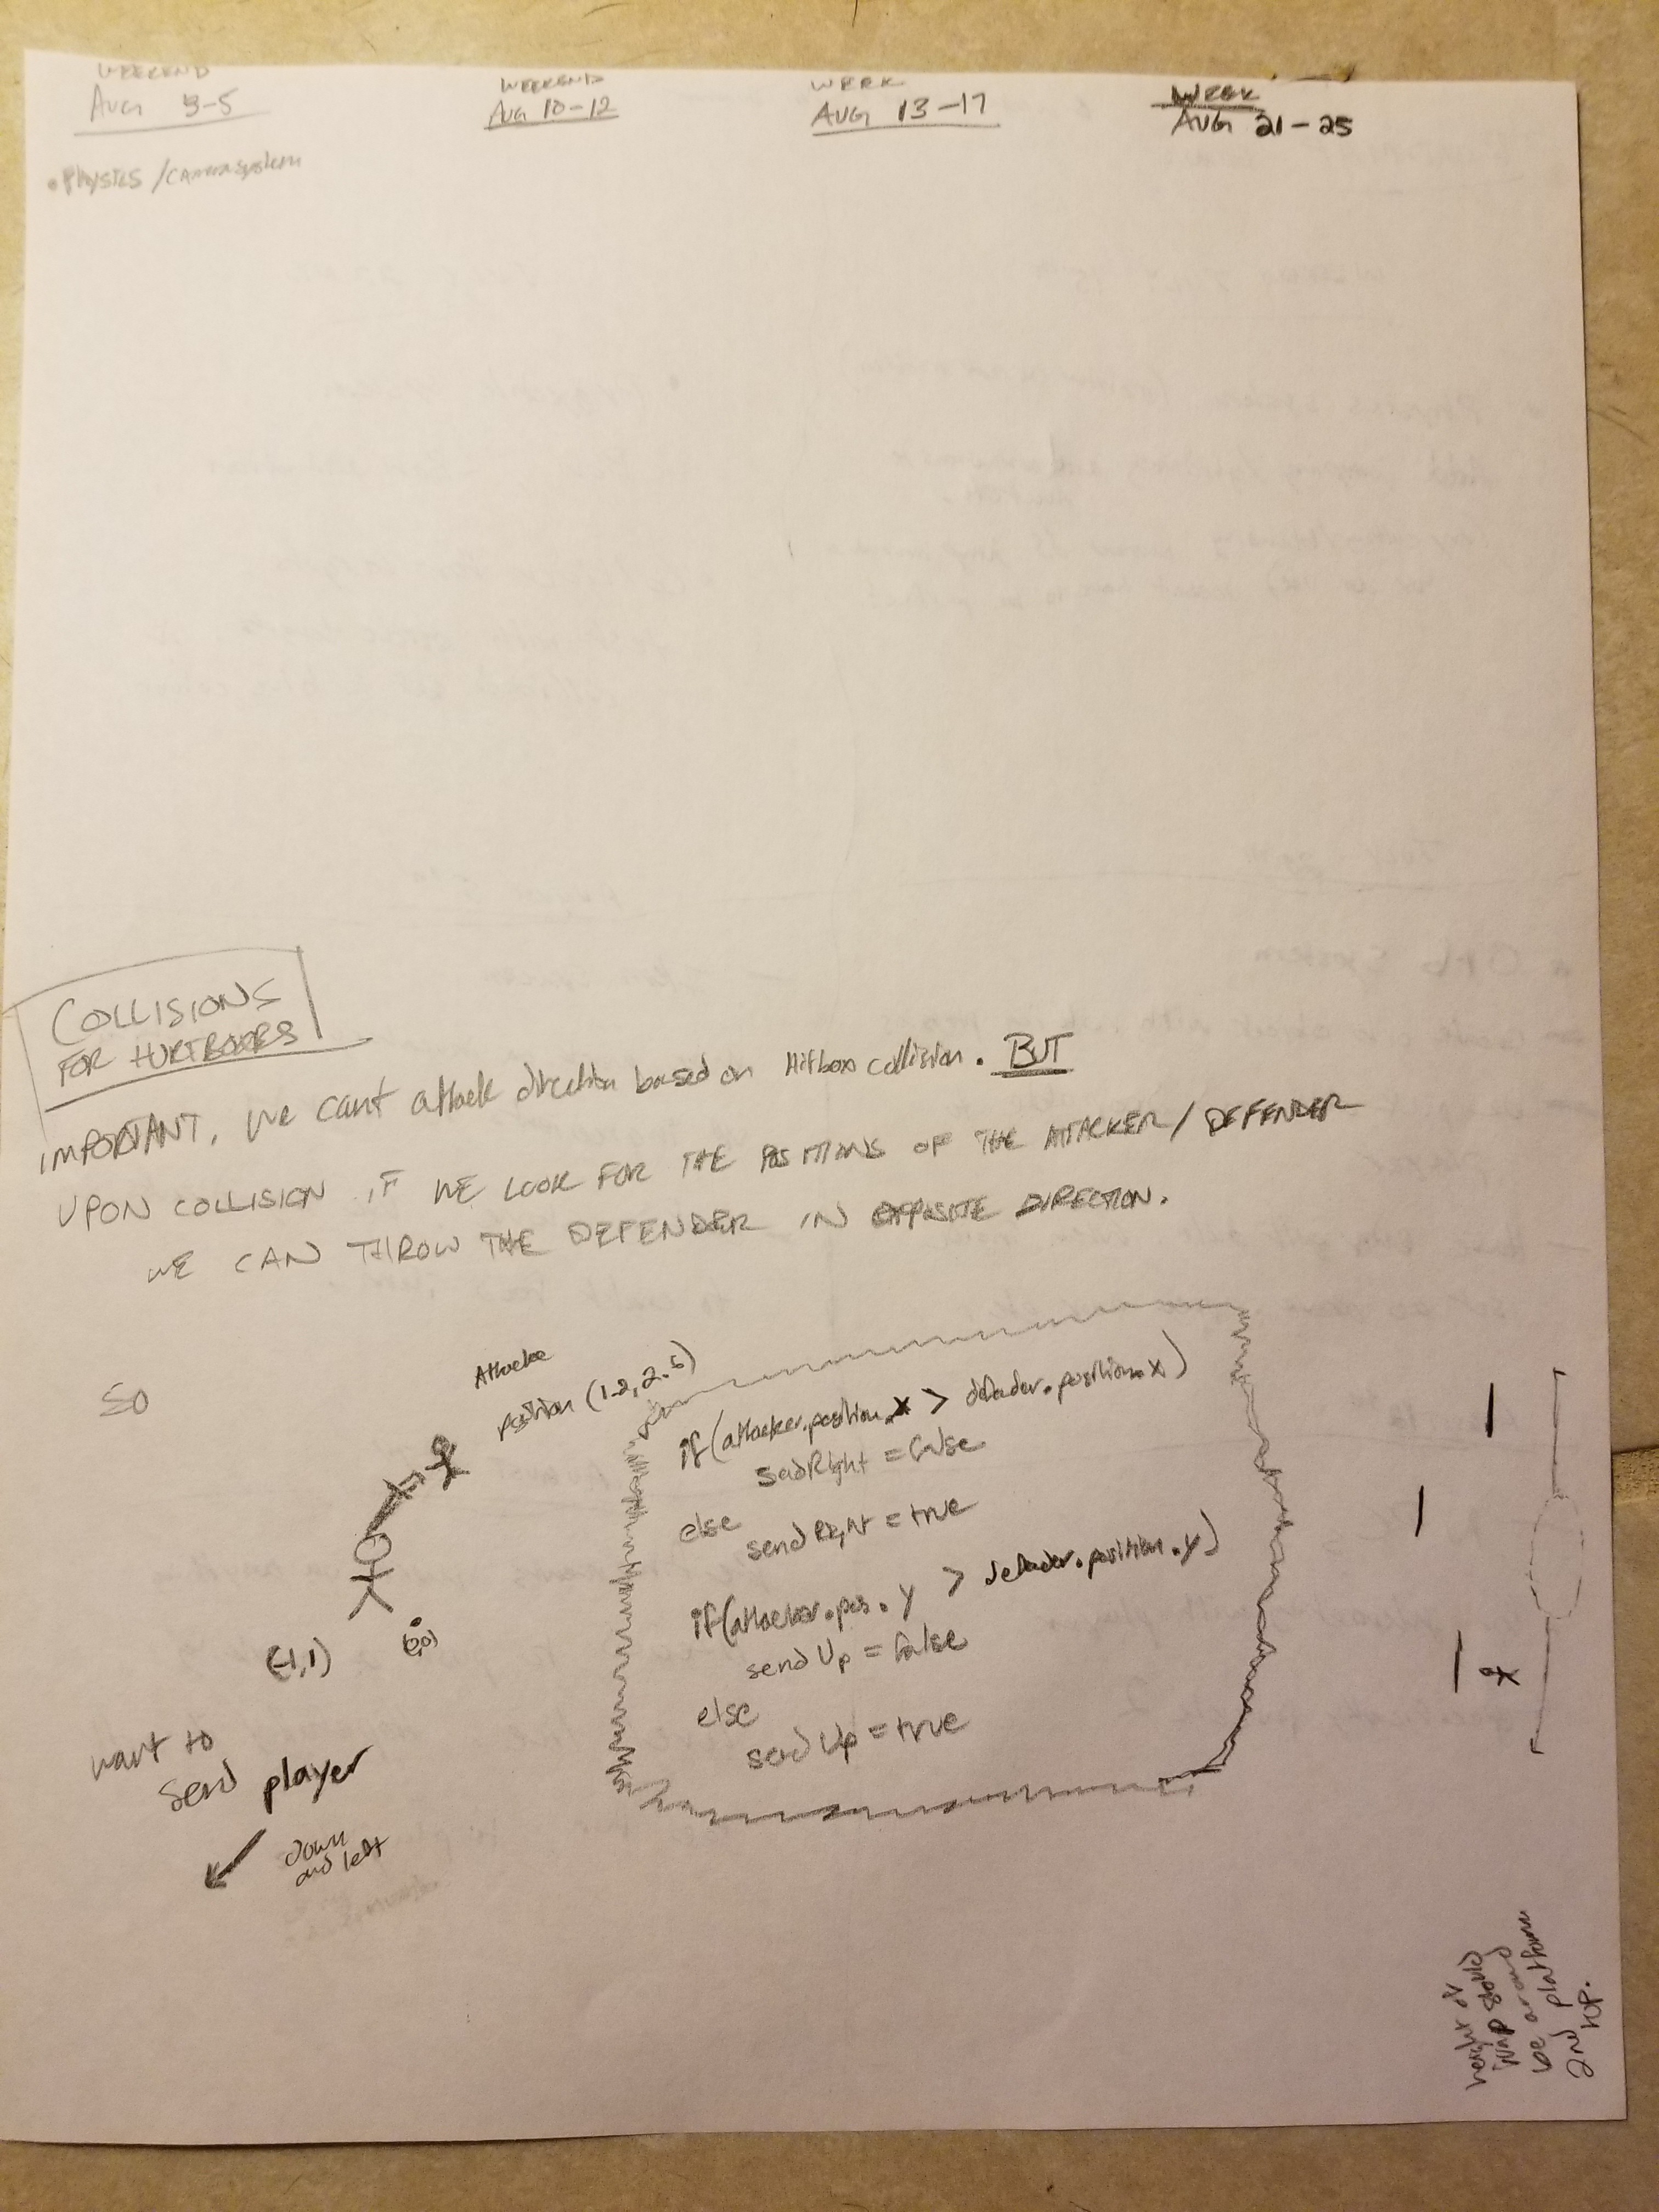 WEEKEND
AUG 3-5
WEEKEND
AUG 10-12
WEEK
AUG 13-17
WEEK
AUG 21-25
• Physics / camera system
COLLISIONS
FOR HURTBOXES
IMPORTANT, we cant attack direction based on Hitbox collision. BUT
UPON COLLISION IF WE LOOK FOR THE POSITIONS OF THE ATTACKER/DEFENDER
WE CAN THROW THE DEFENDER IN OPPOSITE DIRECTION.
SO
position (1.2, 2.5)
(-1,1)
(0,0)
want to
send player
down
and left
if(attacker.position.x > defender.position.x)
sendRight = false
else
sendRight = true
if(attacker.pos.y > defender.position.y)
sendUp = false
else
sendUp = true
height of
warp should
be around
2nd platform
top.